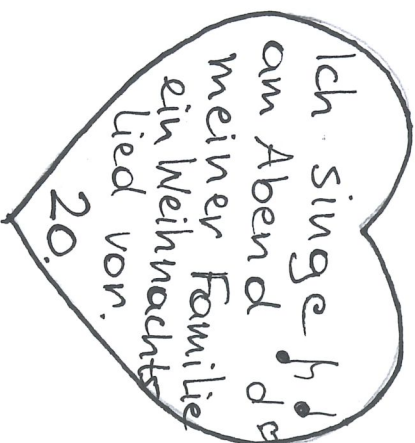 Ich singe
am Abend
meiner Familie
ein Weihnachts
lied vor.
20.